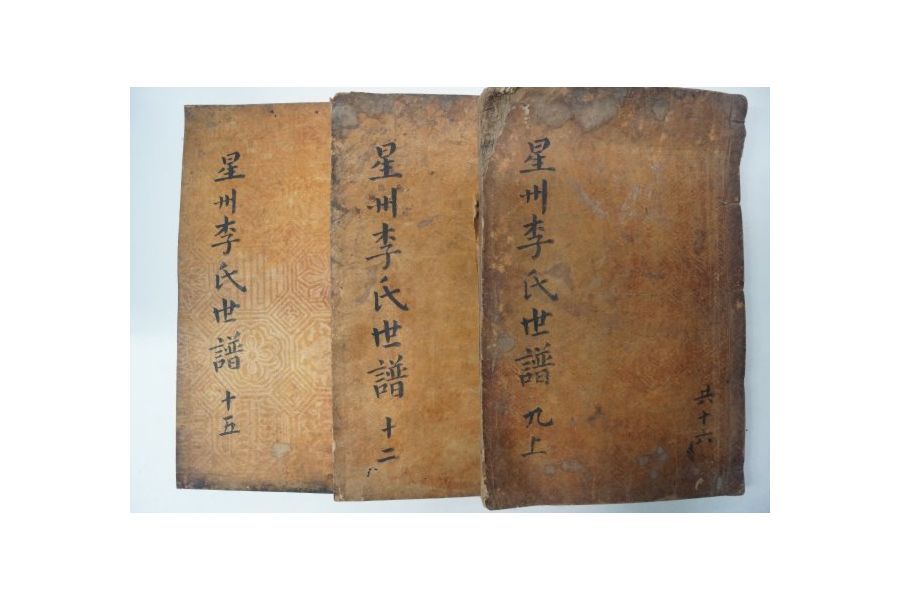 星州李氏世譜 九上
共十六
星州李氏世譜 十二
星州李氏世譜 十五